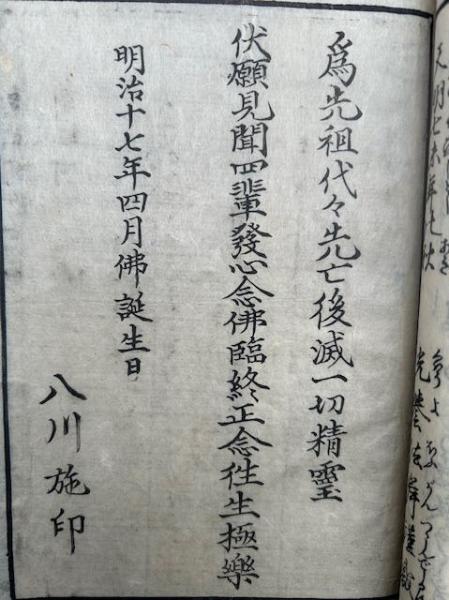 爲先祖代々先亡後滅一切精霊
伏願見聞四輩發心念佛臨終正念徃生極樂
明治十七年四月佛誕生日
八川施印